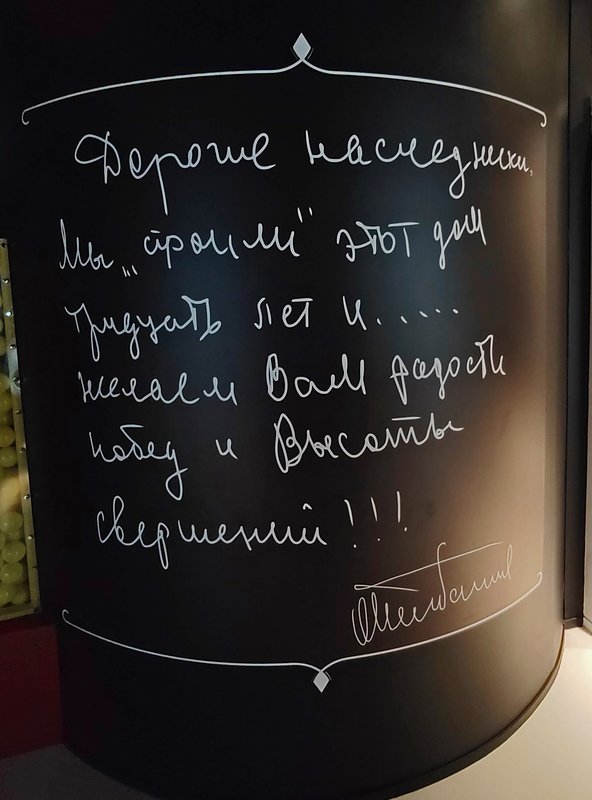 Дорогие наследники,
Мы „строили" этот дом
тридцать лет и.....
желаем Вам радости
побед и Высоты
свершений!!!